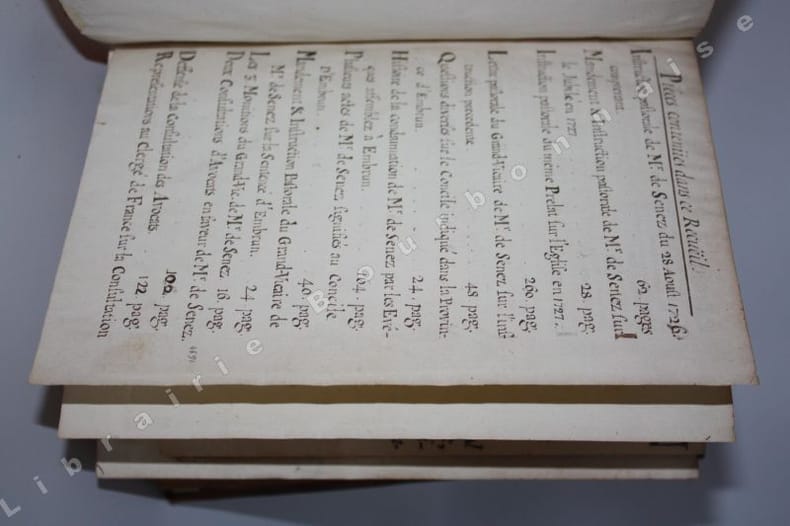 Pieces contenües dans ce Recueil.
Instruct. pastorale de Mr. de Senez du 28 Aoust 1726.
60. pages
Mandement & Instruction pastorale de Mr. de Senez sur
le Jubilé en 1727. 28. pag.
Instruction pastorale du même Prelat sur l'Eglise en 1727.
260. pag.
Lettre pastorale du Grand-Vicaire de Mr. de Senez sur l'ins-
truction precedente 48 pag.
Questions diverses sur le Concile indiqué dans la Provin-
ce d'Embrun. 24. pag.
Histoire de la condamnation de Mr. de Senez par les Evê-
ques assemblez à Embrun.
Plusieurs actes de Mr. de Senez signifiés au Concile
d'Embrun. 164. pag.
Mandement & Instruction Pastorale du Grand-Vicaire de
Mr. de Senez sur la Sentence d'Embrun. 40. pag.
Les 3 Monitions du Grand-Vic. de Mr. de Senez 24. pag
Deux Consultations d'Avocats en faveur de Mr. de Senez. 16. pag.
Deffense de la Consultation des Avocats. 102. pag.
Representations au Clergé de France sur la Consultation
122 pag.
Librairie Bourbonnaise